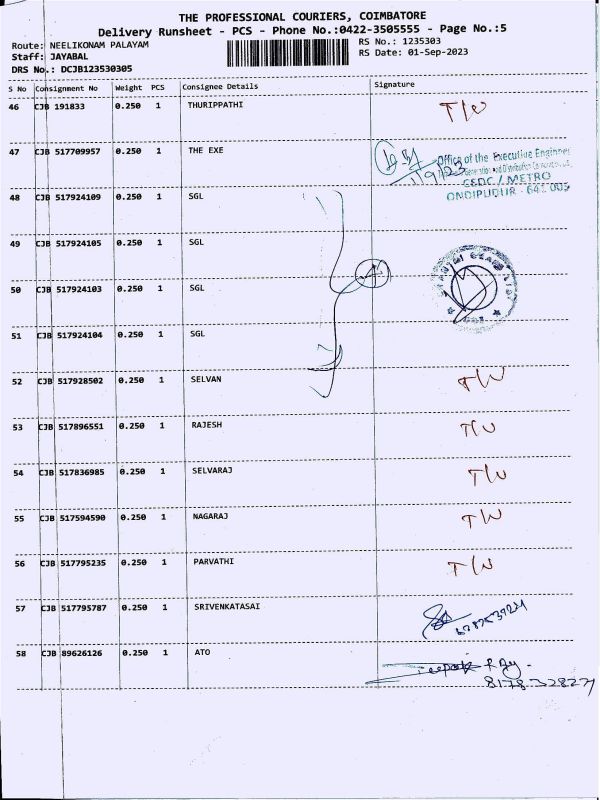 THE PROFESSIONAL COURIERS, COIMBATORE
Delivery Runsheet - PCS - Phone No.:0422-3505555 - Page No.:5
Route: NEELIKONAM PALAYAM
RS No.: 1235303
Staff: JAYABAL
RS Date: 01-Sep-2023
DRS No.: DCJB123530305
S No Consignment No Weight PCS Consignee Details Signature
46 CJB 191833 0.250 1 THURIPPATHI T/W
47 CJB 517709957 0.250 1 THE EXE
1/9/23
Office of the Executive Engineer
CEDC / METRO
ONDIPUDUR - 641 005
48 CJB 517924109 0.250 1 SGL
49 CJB 517924105 0.250 1 SGL
50 CJB 517924103 0.250 1 SGL
51 CJB 517924104 0.250 1 SGL
52 CJB 517928502 0.250 1 SELVAN T/W
53 CJB 517896551 0.250 1 RAJESH T/W
54 CJB 517836985 0.250 1 SELVARAJ T/W
55 CJB 517594590 0.250 1 NAGARAJ T/W
56 CJB 517795235 0.250 1 PARVATHI T/W
57 CJB 517795787 0.250 1 SRIVENKATASAI
58 CJB 89626126 0.250 1 ATO